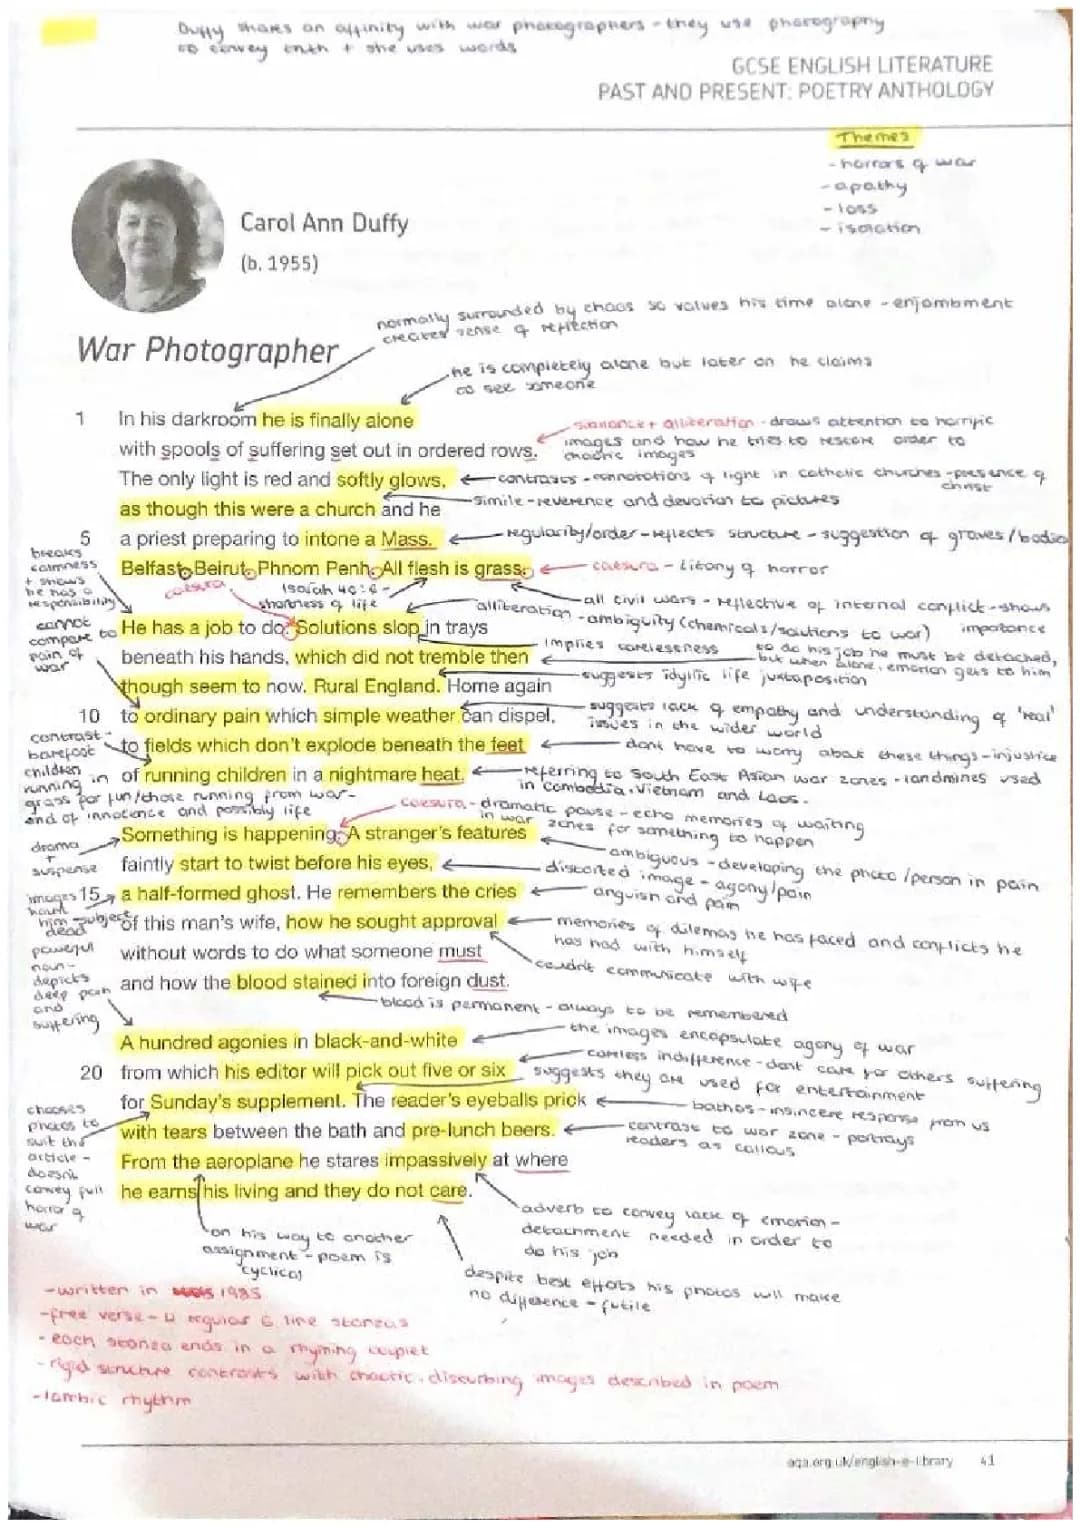 Duffy shares an affinity with war photographers - they use photography
to convey truth + she uses words
GCSE ENGLISH LITERATURE
PAST AND PRESENT: POETRY ANTHOLOGY
Themes
- horrors of war
- apathy
- loss
- isolation
Carol Ann Duffy
(b. 1955)
normally surrounded by chaos so values his time alone - enjambment
creates sense of reflection
War Photographer
he is completely alone but later on he claims
to see someone
1 In his darkroom he is finally alone
sibilance + alliteration - draws attention to horrific
images and how he tries to restore order to
chaotic images
with spools of suffering set out in ordered rows.
The only light is red and softly glows,
contrasts - connotations of light in catholic churches - presence of
christ
simile - reverence and devotion to pictures
as though this were a church and he
5 a priest preparing to intone a Mass.
regularity/order - reflects structure - suggestion of graves/bodies
breaks
calmness
+ shows
he has a
responsibility
Belfast. Beirut. Phnom Penh. All flesh is grass.
caesura - litany of horror
caesura
Isaiah 40:6 -
shortness of life
all civil wars - reflective of internal conflict - shows
importance
alliteration - ambiguity (chemicals/solutions to war)
cannot
compare to
pain of
war
He has a job to do. Solutions slop in trays
implies carelessness
to do his job he must be detached,
but when alone, emotion gets to him
beneath his hands, which did not tremble then
suggests idyllic life juxtaposition
though seem to now. Rural England. Home again
suggests lack of empathy and understanding of 'real'
issues in the wider world
10 to ordinary pain which simple weather can dispel,
contrast -
barefoot
children
running in
grass for fun/those running from war -
end of innocence and possibly life
to fields which don't explode beneath the feet
dont have to worry about these things - injustice
of running children in a nightmare heat.
referring to South East Asian war zones - landmines used
in Cambodia, Vietnam and Laos.
caesura - dramatic pause - echo memories of waiting
in war zones for something to happen
drama
+
suspense
Something is happening. A stranger's features
ambiguous - developing the photo/person in pain
faintly start to twist before his eyes,
distorted image - agony/pain
images
haunt
him - subject
dead
15 a half-formed ghost. He remembers the cries
anguish and pain
of this man's wife, how he sought approval
memories of dilemas he has faced and conflicts he
has had with himself
without words to do what someone must
couldn't communicate with wife
powerful
noun -
depicts
deep pain
and
suffering
and how the blood stained into foreign dust.
blood is permanent - always to be remembered
A hundred agonies in black-and-white
the images encapsulate agony of war
20 from which his editor will pick out five or six
careless indifference - dont care for others suffering
suggests they are used for entertainment
chooses
photos to
suit the
article -
doesnt
convey full
horror of
war
for Sunday's supplement. The reader's eyeballs prick
bathos - insincere response from us
with tears between the bath and pre-lunch beers.
contrast to war zone - portrays
readers as callous
From the aeroplane he stares impassively at where
he earns his living and they do not care.
on his way to another
assignment - poem is
cyclical
adverb to convey lack of emotion -
detachment needed in order to
do his job
despite best efforts his photos will make
no difference - futile
- written in 1985
- free verse - 4 regular 6 line stanzas
- each stanza ends in a rhyming couplet
- rigid structure contrasts with chaotic, disturbing images described in poem
- Iambic rhythm
aqa.org.uk/english-e-library 41